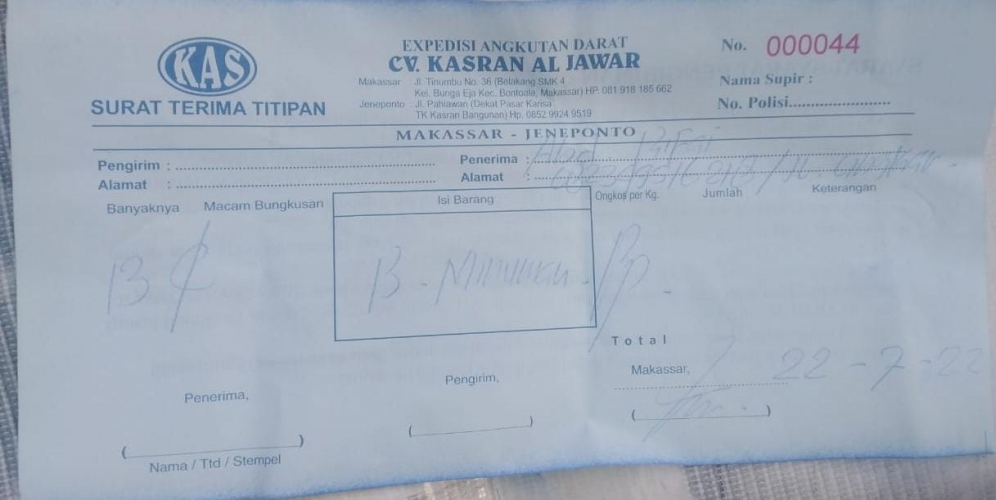 KAS
SURAT TERIMA TITIPAN
EXPEDISI ANGKUTAN DARAT
CV. KASRAN AL JAWAR
Makassar : Jl. Tinumbu No. 36 (Belakang SMK 4
Kel. Bunga Eja Kec. Bontoala, Makassar) HP. 081 918 185 662
Jeneponto : Jl. Pahlawan (Dekat Pasar Karisa
TK Kasran Bangunan) Hp. 0852 9924 9519
No. 000044
Nama Supir :
No. Polisi
MAKASSAR - JENEPONTO
Pengirim :
Alamat :
Penerima :
Alamat :
Banyaknya Macam Bungkusan Isi Barang Ongkos per Kg. Jumlah Keterangan
13
Total
Makassar, 22-7-22
Penerima,
Pengirim,
Nama / Ttd / Stempel